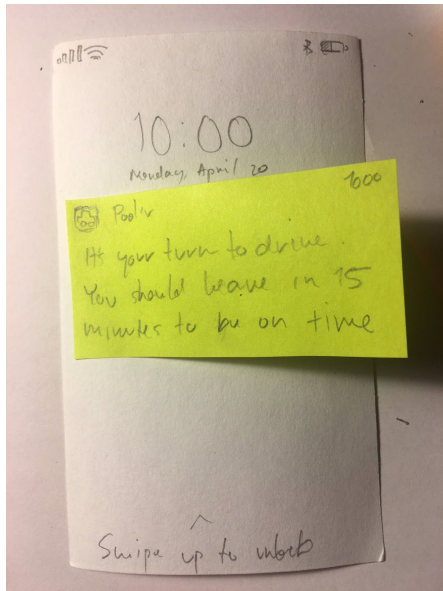 10:00
Monday, April 20
Poolr
It's your turn to drive.
You should leave in 15
minutes to be on time
Swipe up to unlock